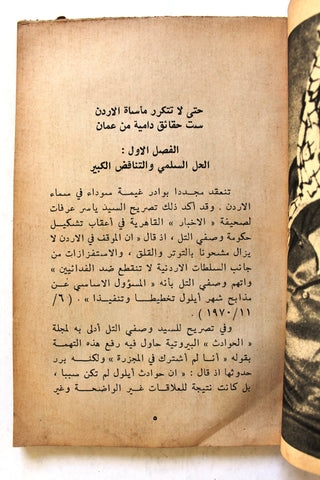 حتى لا تتكرر مأساة الاردن
ست حقائق دامية من عمان
الفصل الاول :
الحل السلمي والتناقض الكبير
تنعقد مجددا بوادر غيمة سوداء في سماء
الاردن . وقد أكد ذلك تصريح السيد ياسر عرفات
لصحيفة « الاخبار » القاهرية في أعقاب تشكيل
حكومة وصفي التل ، اذ قال « ان الموقف في الاردن لا
يزال مشحونا بالتوتر والقلق ، والاستفزازات من
جانب السلطات الاردنية لا تنقطع ضد الفدائيين »
واتهم وصفي التل بأنه « المسؤول الاساسي عن
مذابح شهر أيلول تخطيطا وتنفيذا » . ( ٦/
١١/١٩٧٠ ) .
وفي تصريح للسيد وصفي التل أدلى به لمجلة
« الحوادث » البيروتية حاول فيه رفع هذه التهمة
بقوله « أنا لم أشترك في المجزرة » ولكنه برر
حدوثها اذ قال : « ان حوادث أيلول لم تكن سببا ،
بل كانت نتيجة للعلاقات غير الواضحة وغير
٥